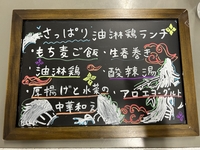 さっぱり油淋鶏ランチ
・もち麦ご飯・生春巻き
・油淋鶏・酸辣湯
・厚揚げと水菜の・アロエヨーグルト
中華和え